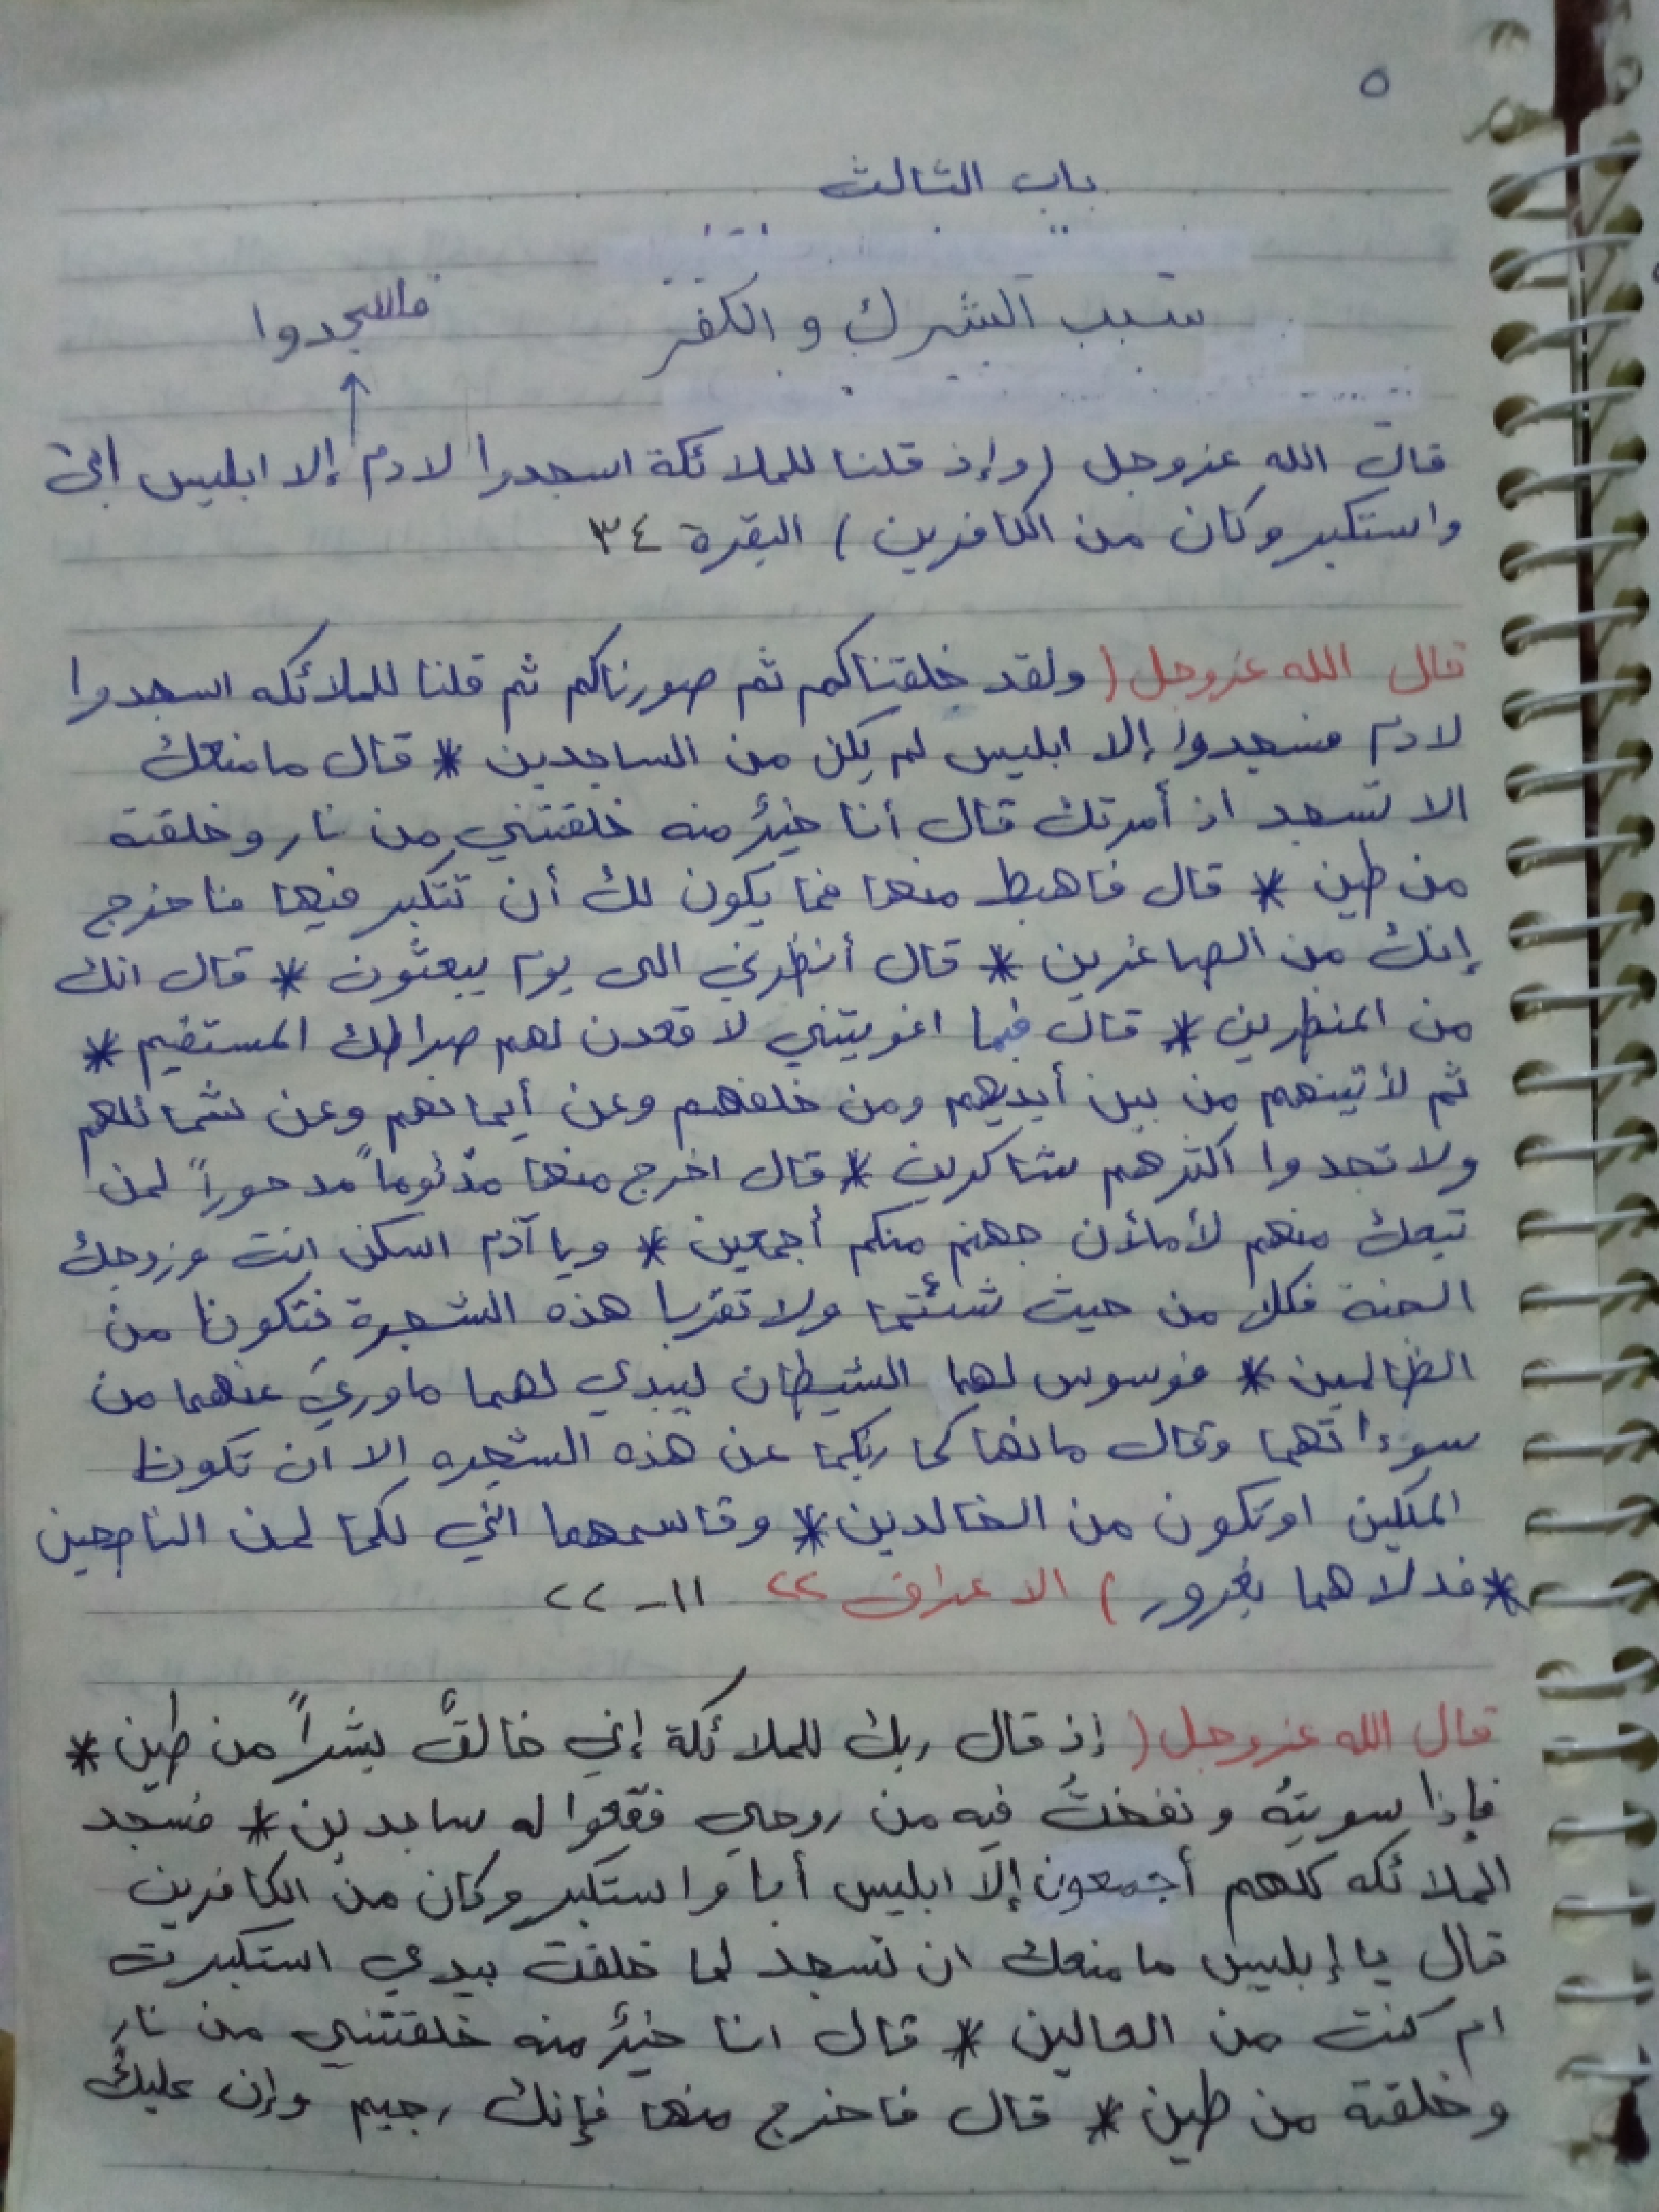 ٥
باب الثالث
سبب الشرك و الكفر
فاسجدوا
قال الله عزوجل (وإذ قلنا للملائكة اسجدوا لادم إلا ابليس ابئ
واستكبر وكان من الكافرين) البقرة ٣٤
قال الله عزوجل (ولقد خلقناكم ثم صورناكم ثم قلنا للملائكه اسجدوا
لادم فسجدوا إلا ابليس لم يكن من الساجدين * قال مامنعك
الا تسجد اذ أمرتك قال أنا خيرٌ منه خلقتني من نار وخلقتة
من طين * قال فاهبط منها فما يكون لك أن تتكبر فيها فاخرج
إنك من الصاغرين * قال أنظرني الى يوم يبعثون * قال انك
من المنظرين * قال فبما اغويتني لاقعدن لهم صراطك المستقيم *
ثم لأتينهم من بين أيديهم ومن خلفهم وعن أيمانهم وعن شمائلهم
ولا تجدوا اكثرهم شاكرين * قال اخرج منها مذئوماً مدحوراً لمن
تبعك منهم لأملأن جهنم منكم أجمعين * ويا آدم اسكن انت وزوجك
الجنة فكلا من حيث شئتما ولا تقربا هذه الشجرة فتكونا من
الظالمين * فوسوس لهما الشيطان ليبدي لهما ماوريَ عنهما من
سوءاتهما وقال مانهاكما ربكما عن هذه الشجره إلا ان تكونا
الملكين اوتكون من الخالدين * وقاسمهما اني لكما لمن الناصحين
* فدلاهما بغرور) الاعراف ٢٢ ١١-٢٢
قال الله عزوجل (إذ قال ربك للملائكة إني خالقٌ بشراً من طين *
فإذا سويتهُ ونفختُ فيه من روحي فقعوا له ساجدين * فسجد
الملائكه كلهم أجمعون إلّا ابليس أبا واستكبر وكان من الكافرين
قال يا إبليس مامنعك ان تسجد لما خلقت بيدي استكبرت
ام كنت من العالين * قال انا خيرٌ منه خلقتني من نارٍ
وخلقتة من طين * قال فاخرج منها فإنك رجيم وإن عليك